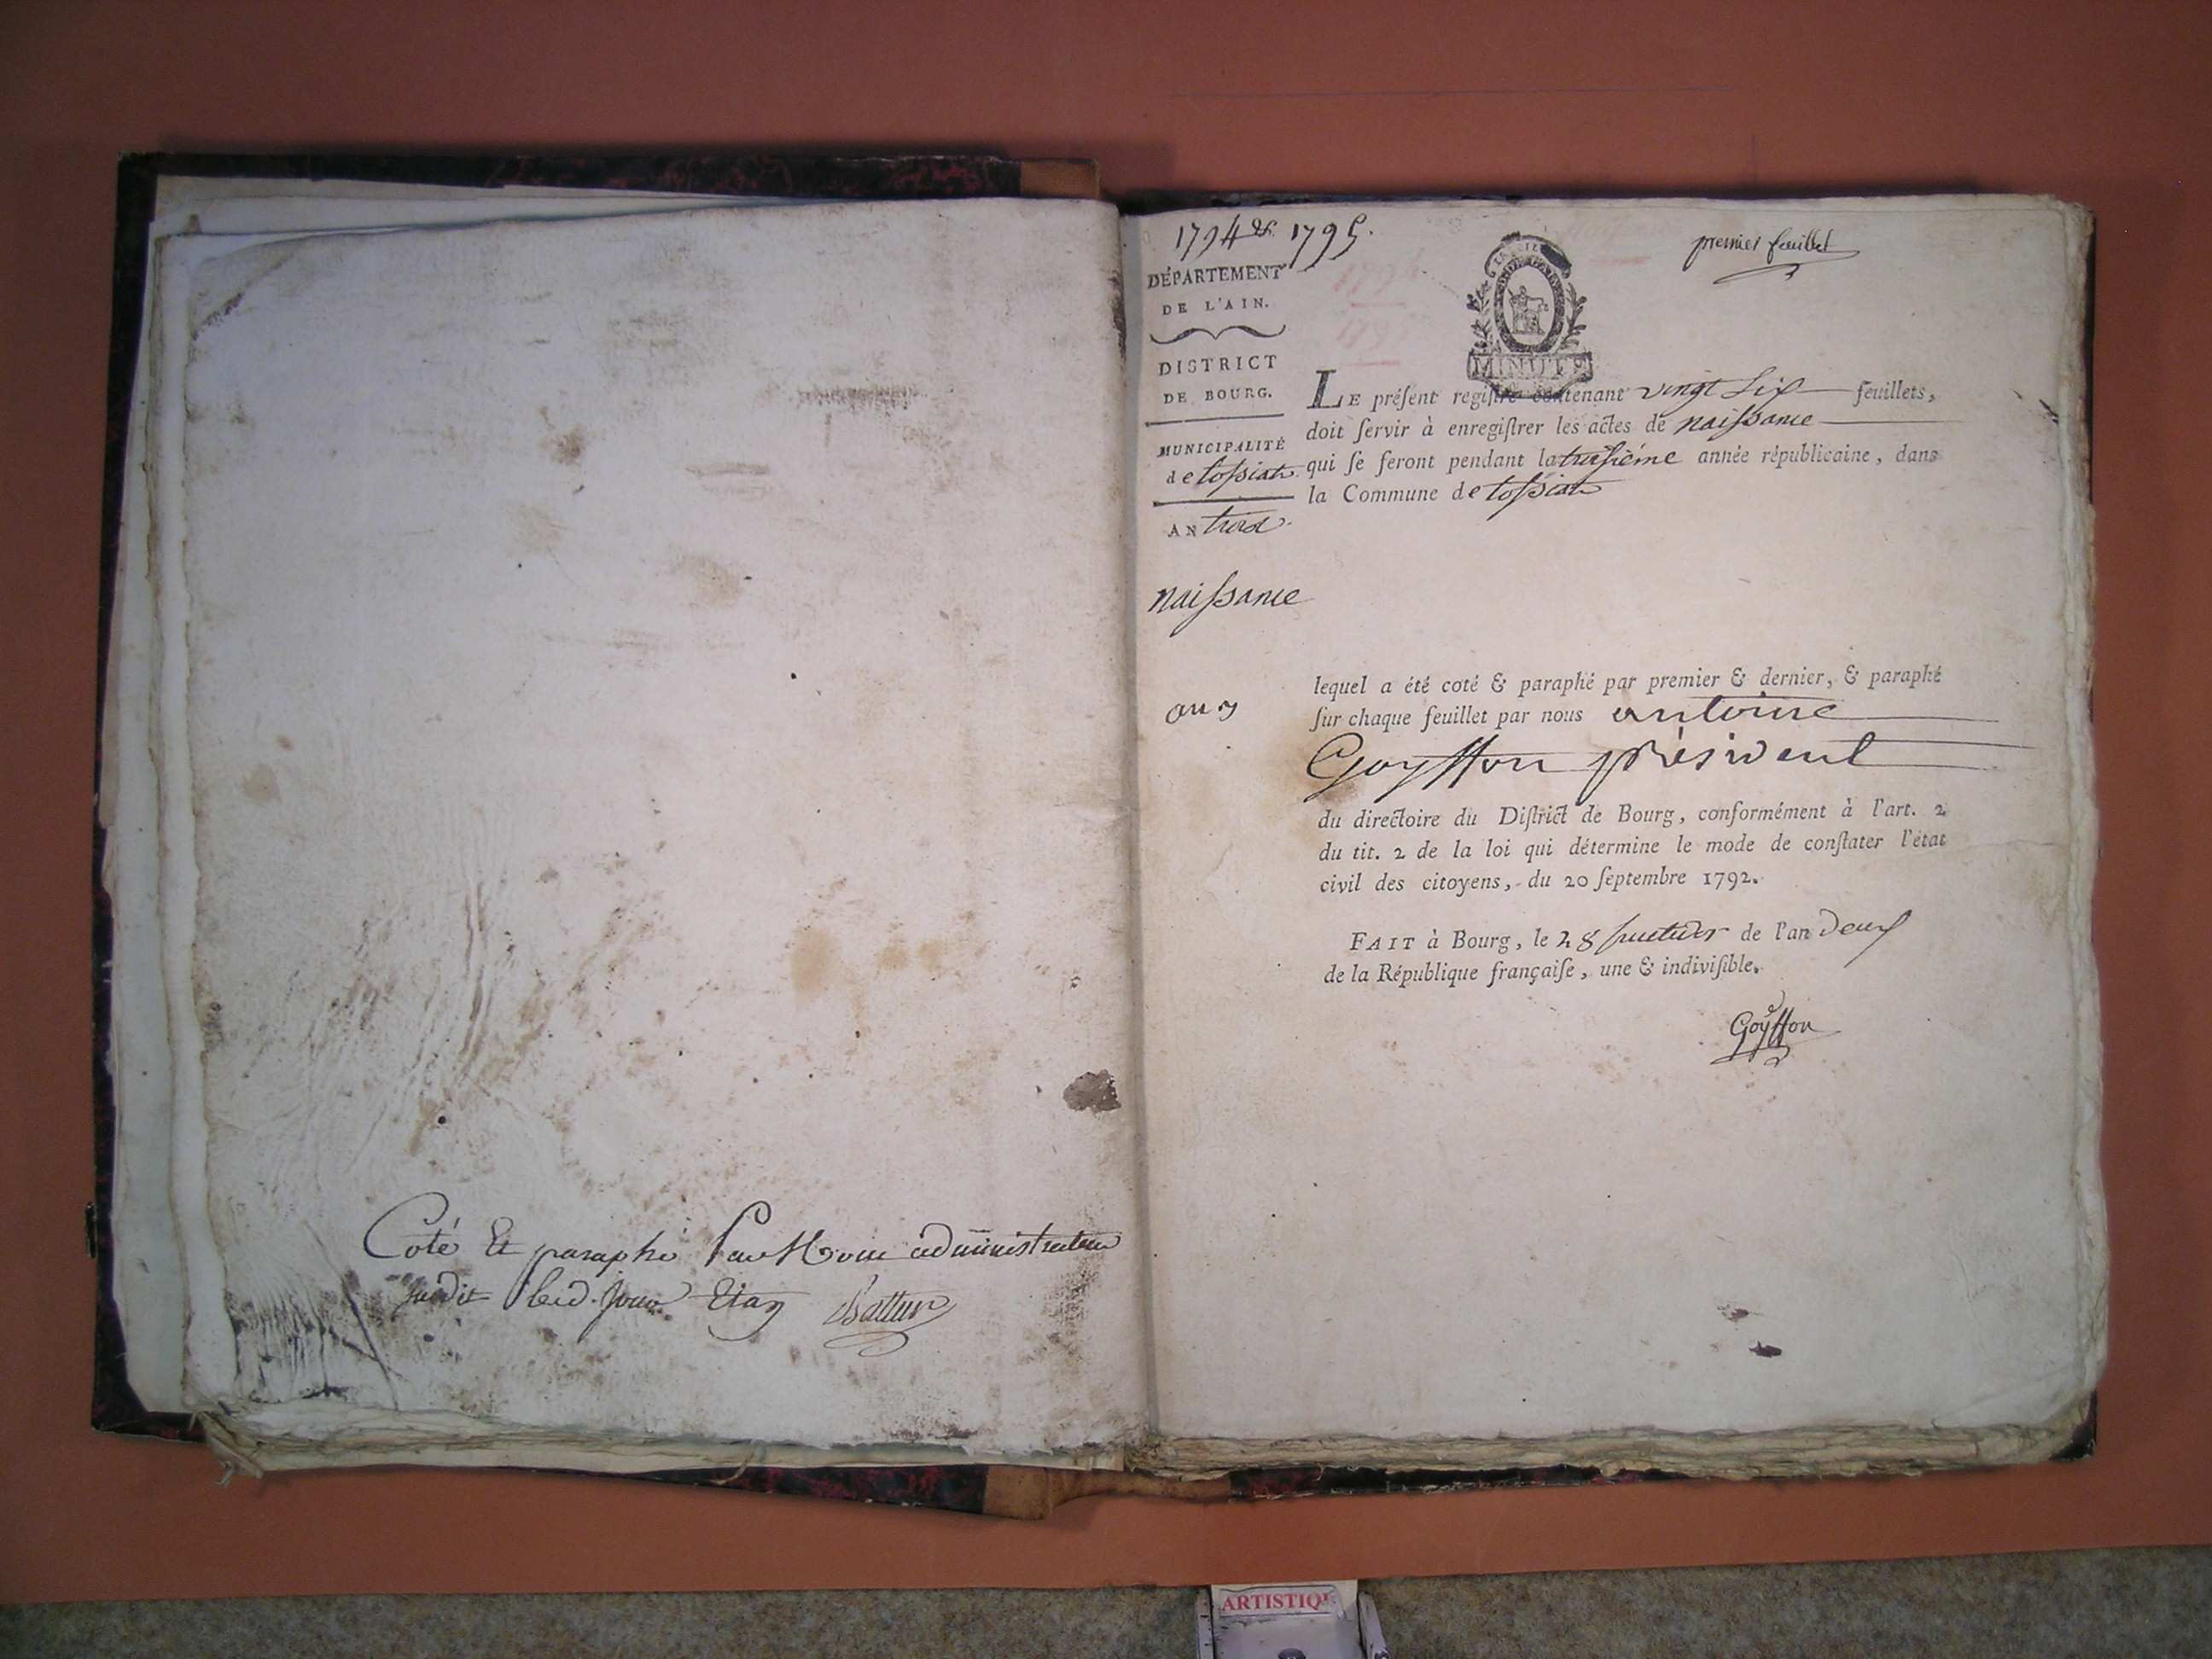 Coté Et paraphé Par Nous administrateur
susdit lesd. jour Et an
1794 & 1795.
premier feuillet
DÉPARTEMENT
DE L'AIN.
DISTRICT
DE BOURG.
MUNICIPALITÉ
de tossiat
AN trois
naissance
an 3
MINUTE
LE préſent regiſtre contenant vingt six feuillets,
doit ſervir à enregiſtrer les actes de naissance
qui ſe feront pendant la troisième année républicaine, dans
la Commune de tossiat
lequel a été coté & paraphé par premier & dernier, & paraphé
ſur chaque feuillet par nous antoine
Goyffon président
du directoire du Diſtrict de Bourg, conformément à l'art. 2
du tit. 2 de la loi qui détermine le mode de conſtater l'état
civil des citoyens, du 20 ſeptembre 1792.
FAIT à Bourg, le 28 fructidor de l'an deux
de la République françaiſe, une & indiviſible.
Goyffon
ARTISTIQU